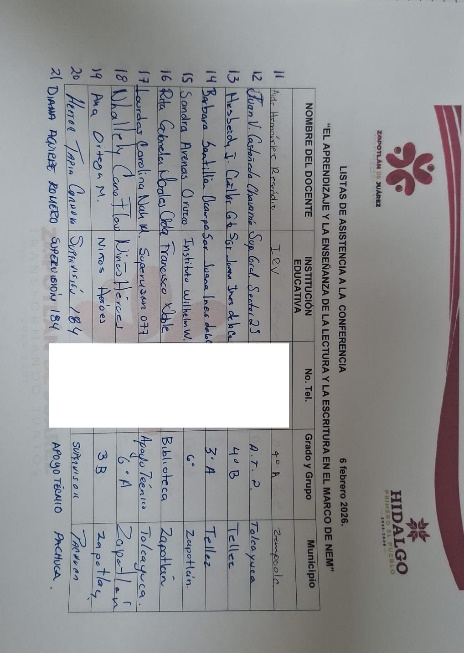 ZAPOTLÁN DE JUÁREZ
HIDALGO
PRIMERO EL PUEBLO
LISTAS DE ASISTENCIA A LA CONFERENCIA
6 febrero 2026.
"EL APRENDIZAJE Y LA ENSEÑANZA DE LA LECTURA Y LA ESCRITURA EN EL MARCO DE NEM"
NOMBRE DEL DOCENTE INSTITUCIÓN EDUCATIVA No. Tel. Grado y Grupo Municipio
11 4° A Zempoala
12 Juan V. Sup. Gral. Sector 23 A.T.P Tolcayuca
13 Sor Juan Ines de la C 4° B Tellez
14 Barbara Santillan Ocampo Sor Juana Ines de la 3° A Tellez
15 Sandra Arenas Orozco Instituto Wilhelm W. 6° Zapotlán
16 Rita Gabriela Francisco Noble Biblioteca Zapotlán
17 Lourdes Carolina Supervision 077 Apoyo Técnico Tolcayuca.
18 Cano Flores Niños Héroes 6° A Zapotlán
19 Ana Ortega M. Niños Héroes 3 B Zapotlan
20 Hector Tapia SUPERVISIÓN 184 SUPERVISOR PACHUCA
21 DIANA AGUIRRE ROMERO SUPERVISIÓN 184 APOYO TÉCNICO PACHUCA.